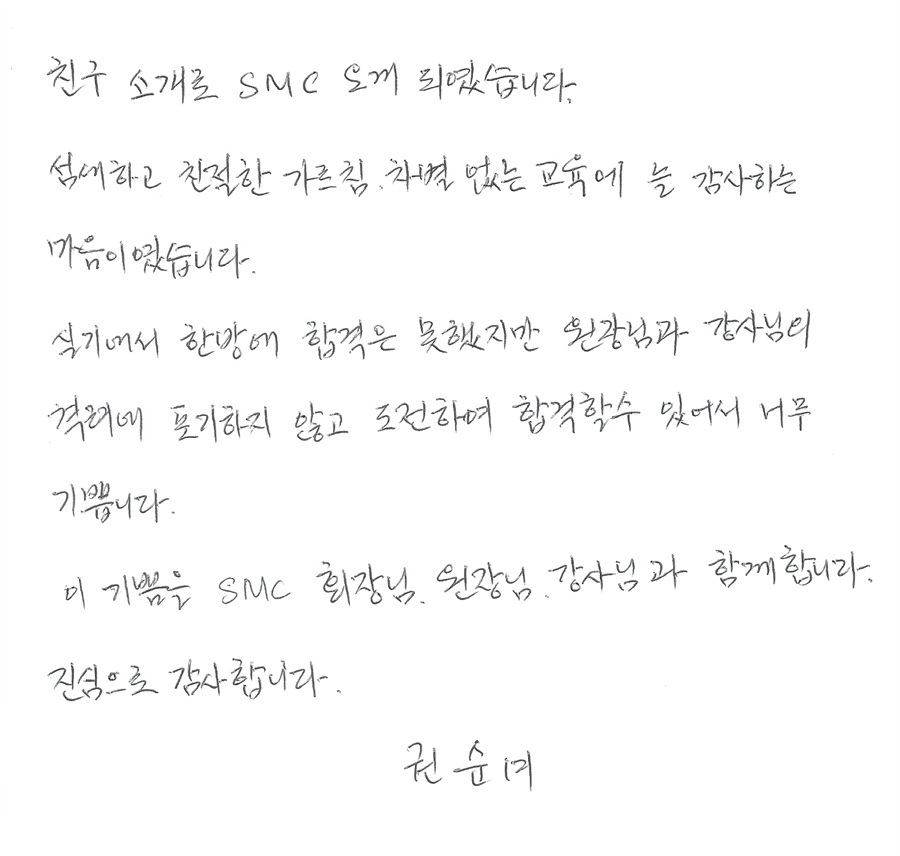 친구 소개로 SMC 오게 되였습니다.
섬세하고 친절한 가르침, 차별 없는 교육에 늘 감사하는
마음이였습니다.
실기에서 한방에 합격은 못했지만 원장님과 강사님의
격려에 포기하지 않고 도전하여 합격할수 있어서 너무
기쁩니다.
이 기쁨을 SMC 회장님, 원장님, 강사님과 함께합니다.
진심으로 감사합니다.
권순미